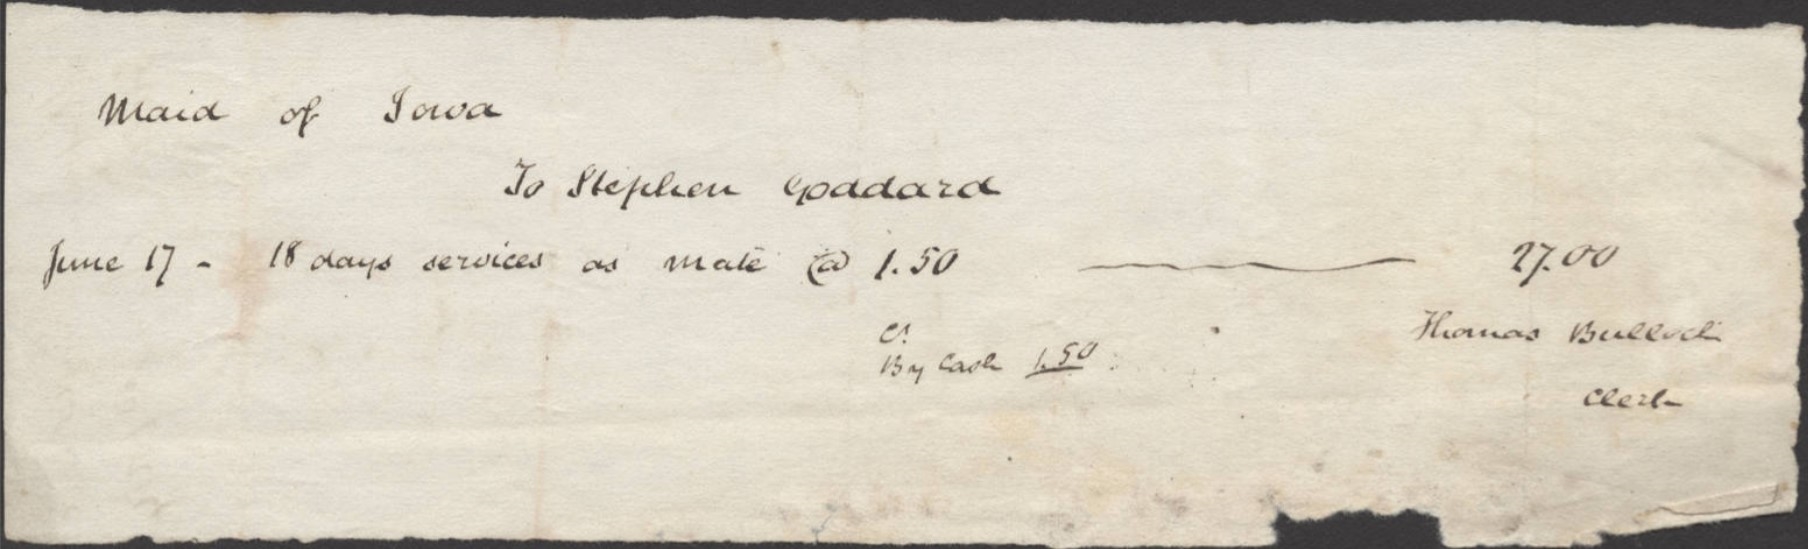 Maid of Iowa
To Stephen Goddard
June 17 - 18 days services as mate @ 1.50 — 27.00
Cr.
By Cash 1.50
Thomas Bullock
Clerk